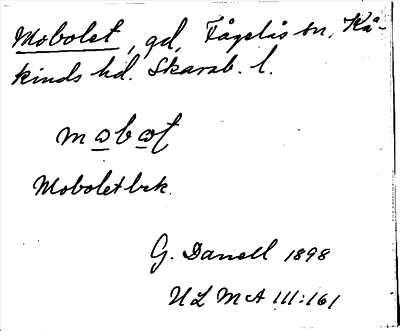 Mobolet, gd, Fågelås sn, Kå-
kinds hd. Skarab. l.
mɷbɷt
Moboletbrk.
G. Danell 1898
ULMA 111:161